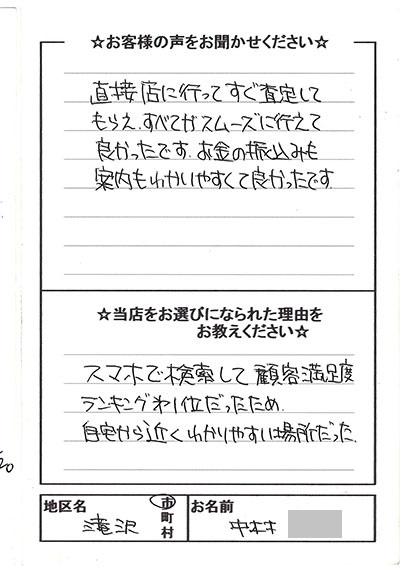 ☆お客様の声をお聞かせください☆
直接店に行ってすぐ査定して
もらえ、すべてがスムーズに行えて
良かったです。お金の振込みも
案内もわかりやすくて良かったです。
☆当店をお選びになられた理由を
お教えください☆
スマホで検索して顧客満足度
ランキングNo1位だったため。
自宅から近くわかりやすい場所だった。
地区名 滝沢 市町村 お名前 中村
20